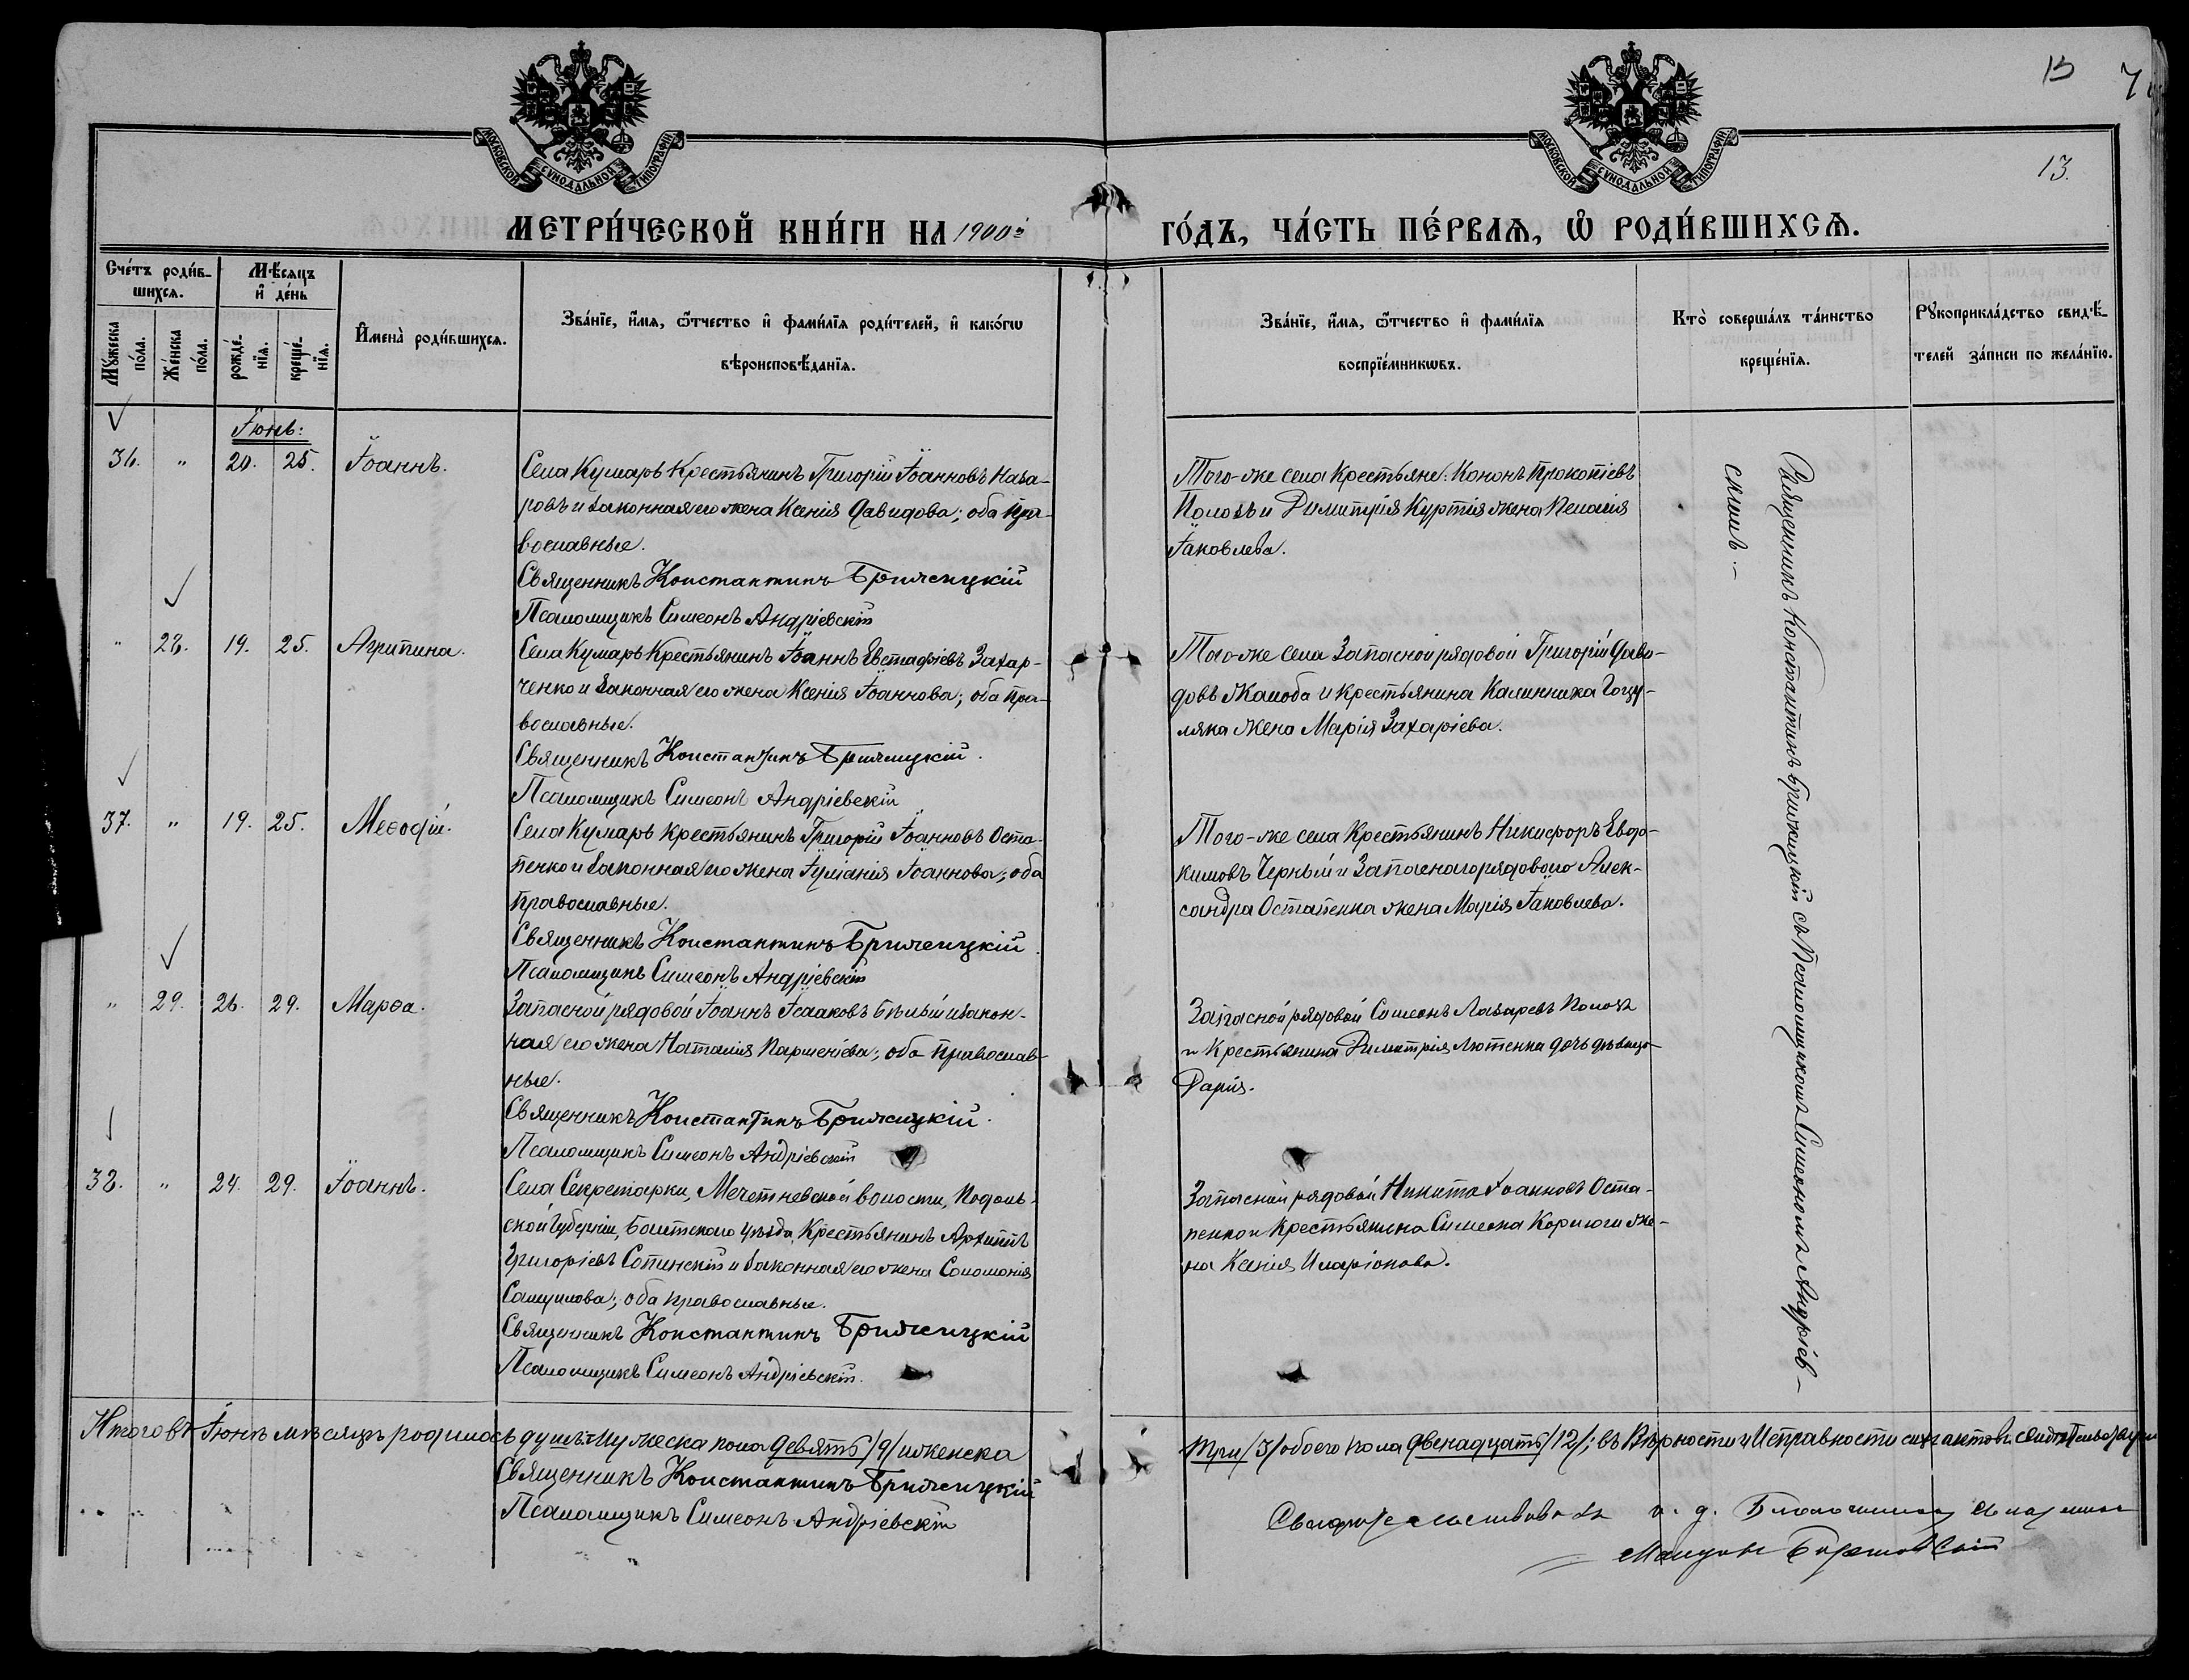 МОСКОВСКОЙ СѴНОДАЛЬНОЙ ТИПОГРАФІИ
МОСКОВСКОЙ СѴНОДАЛЬНОЙ ТИПОГРАФІИ
13
13.
МЕТРИ́ЧЕСКОЙ КНИ́ГИ НА 1900й
ГО́ДЪ, ЧА́СТЬ ПЕ́РВАѦ, Ѡ҆ РОДИ́ВШИХСѦ.
Счéтъ роди́в-
шихсѧ.
Мѣ́сѧцъ
и҆ де́нь
Мꙋ́жеска по́ла.
Же́нска по́ла.
рожде́нїѧ.
креще́нїѧ.
И҆мена̀ роди́вшихсѧ.
Зва́нїе, и҆́мѧ, ѻ҆́тчество и҆ фами́лїѧ роди́телей, и҆ како́гѡ
вѣроисповѣ́данїѧ.
Зва́нїе, и҆́мѧ, ѻ҆́тчество и҆ фами́лїѧ
воспрїе́мникѡвъ.
Кто̀ соверша́лъ та́инство
креще́нїѧ.
Рꙋкоприкла́дство свидѣ́-
телей за́писи по жела́нїю.
Іюнь:
36. " 20. 25. Іоаннъ.
Села Кумаръ Крестьянинъ Григорій Іоанновъ Наза-
ровъ и законная его жена Ксенія Давидова; оба пра-
вославные.
Священникъ Константинъ Брижицкій
Псаломщикъ Симеонъ Андріевскій
Того-же села крестьяне: Кононъ Прокопіевъ
Полозъ и Димитрія Куртія жена Пелагія
Іаковлева.
" 28. 19. 25. Агрипина.
Села Кумаръ Крестьянинъ Іоаннъ Евстафіевъ Захар-
ченко и законная его жена Ксенія Іоаннова; оба пра-
вославные.
Священникъ Константинъ Брижицкій.
Псаломщикъ Симеонъ Андріевскій
Того-же села Запасной рядовой Григорій Дави-
довъ Жалоба и крестьянина Калинника Гоцу-
ляка жена Марія Захаріева.
37. " 19. 25. Меѳодій.
Села Кумаръ крестьянинъ Григорій Іоанновъ Оста-
пенко и законная его жена Іуліанія Іоаннова; оба
православные.
Священникъ Константинъ Брижицкій.
Псаломщикъ Симеонъ Андріевскій
Того-же села Крестьянинъ Никифоръ Евдо-
кимовъ Черный и Запаснаго рядового Алек-
сандра Остапенка жена Марія Іаковлева.
" 29. 26. 29. Марѳа.
Запасной рядовой Іоаннъ Ісааковъ Бѣлый и закон-
ная его жена Наталія Парменіева; оба православ-
ные.
Священникъ Константинъ Брижицкій.
Псаломщикъ Симеонъ Андріевскій
Запасной рядовой Симеонъ Лазаревъ Полозъ
и Крестьянина Димитрія Лютенка дочь дѣвица
Дарія.
38. " 24. 29. Іоаннъ.
Села Секретарки, Мечетневской волости, Подоль-
ской Губерніи, Балтскаго уѣзда, Крестьянинъ Архиппъ
Григоріевъ Сотинскій и законная его жена Соломонія
Самуилова; оба православные.
Священникъ Константинъ Брижицкій
Псаломщикъ Симеонъ Андріевскій.
Запасной рядовой Никита Іоанновъ Оста-
пенко и крестьянина Симеона Корнюги же-
на Ксенія Иларіонова.
Священникъ Константинъ Брижицкій съ Псаломщикомъ Симеономъ Андріев-
скимъ.-
Итого въ Іюнѣ мѣсяцѣ родилось душъ: мужеска пола девять /9/ и женска
три /3/ обоего пола двенадцать /12/; въ Вѣрности и Исправности сихъ актовъ свидѣтельствуемъ
Священникъ Константинъ Брижицкій
Псаломщикъ Симеонъ Андріевскій
и. д.